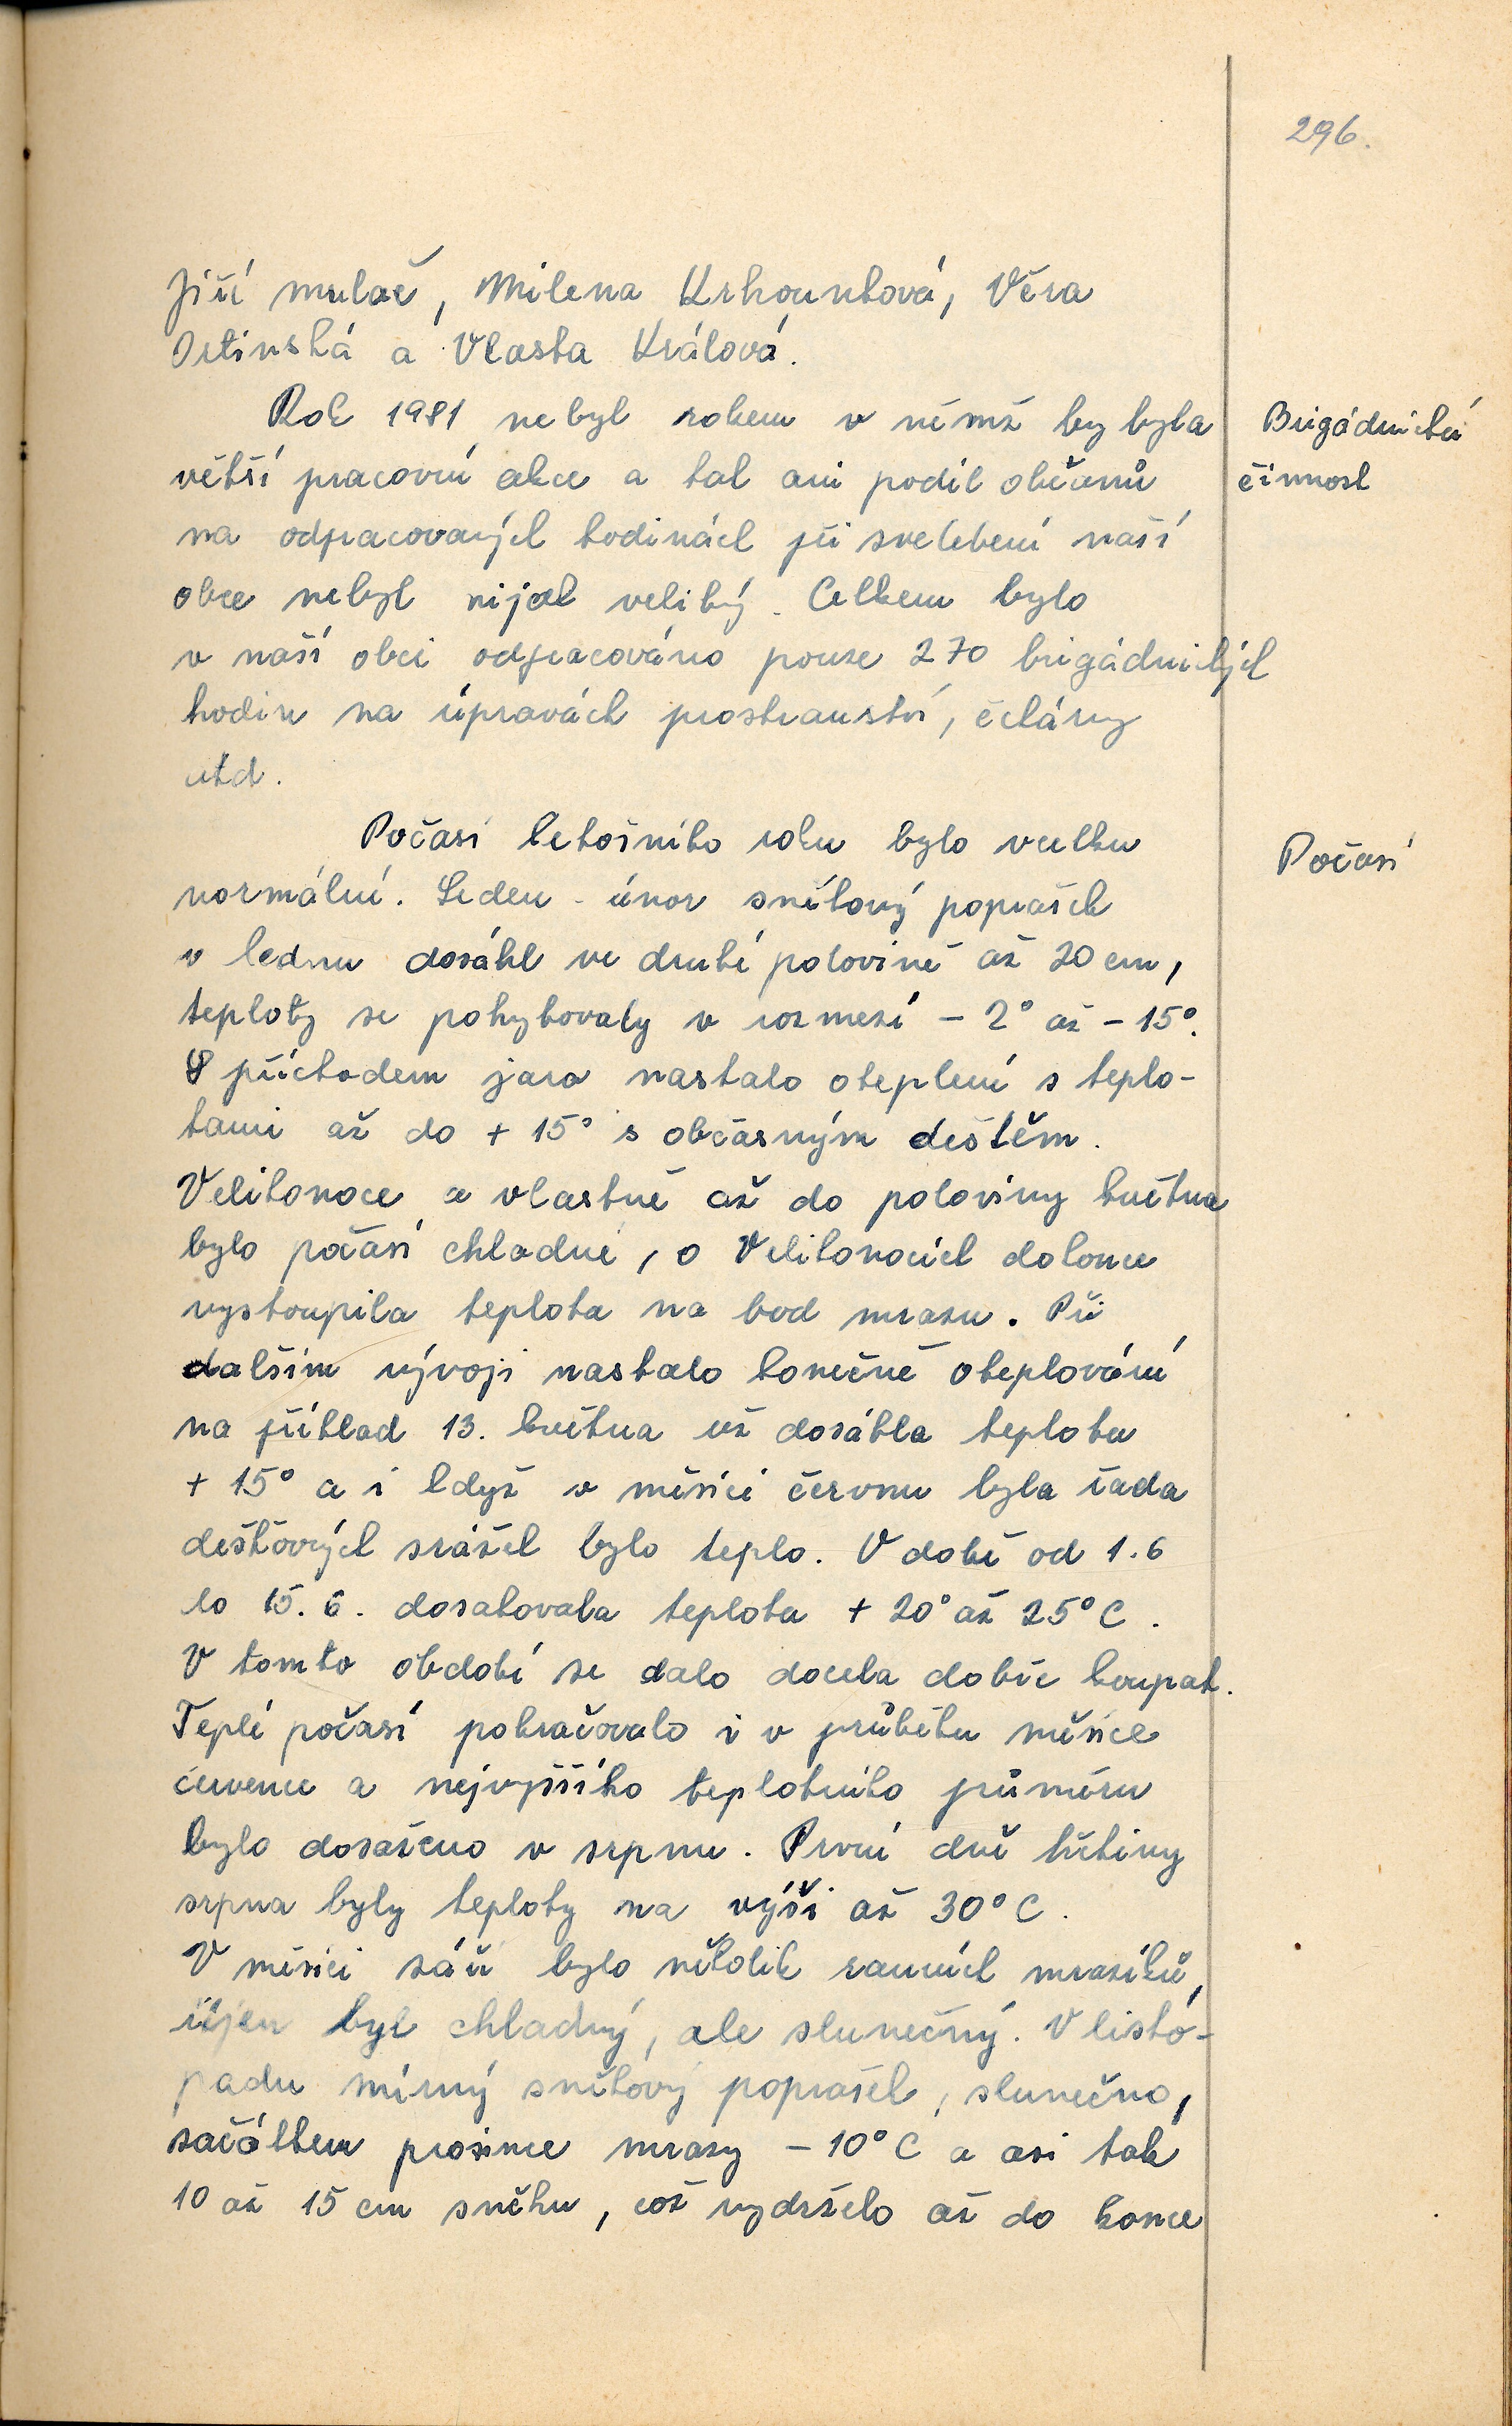 296.
Jiří Mulač, Milena Krhounková, Věra
Ortinská a Vlasta Králová.
Rok 1981 nebyl rokem v němž by byla
větší pracovní akce a tak ani podíl občanů
na odpracovaných hodinách při zvelebení naší
obce nebyl nijak veliký. Celkem bylo
v naší obci odpracováno pouze 270 brigádnických
hodin na úpravách prostranství, čekárny
atd.
Brigádnická
činnost
Počasí letošního roku bylo vcelku
normální. Leden - únor sněhový poprašek
v lednu dosáhl ve druhé polovině až 20 cm,
teploty se pohybovaly v rozmezí - 2° až - 15°.
S příchodem jara nastalo oteplení s teplo-
tami až do + 15° s občasným deštěm.
Velikonoce a vlastně až do poloviny května
bylo počasí chladné, o Velikonocích dokonce
vystoupila teplota na bod mrazu. Při
dalším vývoji nastalo konečně oteplování
na příklad 13. května už dosáhla teplota
+ 15° a i když v měsíci červnu byla řada
dešťových srážek bylo teplo. V době od 1.6
do 15.6. dosahovala teplota + 20° až 25°C.
V tomto období se dalo docela dobře koupat.
Teplé počasí pokračovalo i v průběhu měsíce
července a nejvyššího teplotního průměru
bylo dosaženo v srpnu. První dvě třetiny
srpna byly teploty na výši až 30°C.
V měsíci září bylo několik ranních mrazíků,
říjen byl chladný, ale slunečný. V listo-
padu mírný sněhový poprašek, slunečno,
začátkem prosince mrazy - 10°C a asi tak
10 až 15 cm sněhu, což vydrželo až do konce
Počasí